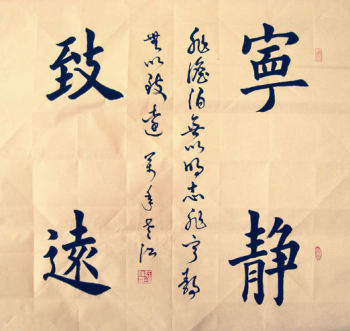 寧静
非澹泊無以明志非寧静
無以致遠
致遠